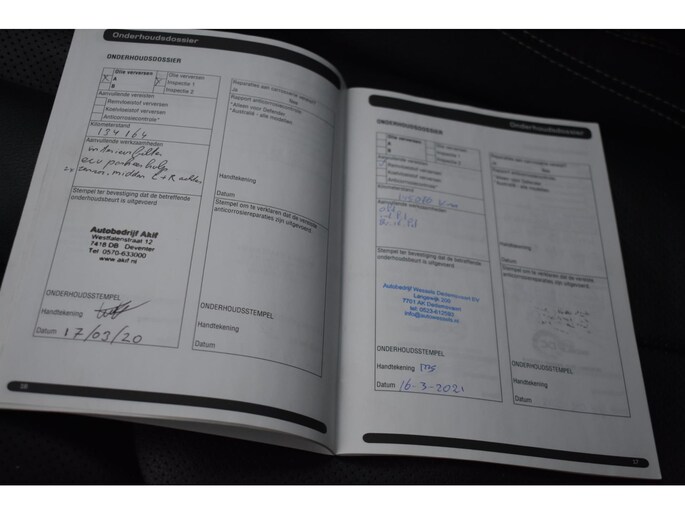 Onderhoudsdossier
ONDERHOUDSDOSSIER
Olie verversen
A
B
Olie verversen
Inspectie 1
Inspectie 2
Aanvullende vereisten
Remvloeistof verversen
Koelvloeistof verversen
Anticorrosiecontrole*
Kilometerstand
134164
Aanvullende werkzaamheden
interieurfilter
Stempel ter bevestiging dat de betreffende
onderhoudsbeurt is uitgevoerd
Autobedrijf Akif
Westfalenstraat 12
7418 DB Deventer
Tel 0570-633000
www.akif.nl
ONDERHOUDSSTEMPEL
Handtekening
Datum 17/03/20
Reparaties aan carrosserie vereist?
Ja Nee
Rapport anticorrosiecontrole
*Alleen voor Defender,
*Australië - alle modellen.
Handtekening
Datum
Stempel om te verklaren dat de vereiste
anticorrosiereparaties zijn uitgevoerd.
ONDERHOUDSSTEMPEL
Handtekening
Datum
16
Onderhoudsdossier
ONDERHOUDSDOSSIER
Olie verversen
A
B
Olie verversen
Inspectie 1
Inspectie 2
Aanvullende vereisten
Remvloeistof verversen
Koelvloeistof verversen
Anticorrosiecontrole*
Kilometerstand
Aanvullende werkzaamheden
Stempel ter bevestiging dat de betreffende
onderhoudsbeurt is uitgevoerd
Autobedrijf Wessels Dedemsvaart BV
Langewijk 200
7701 AK Dedemsvaart
tel: 0523-612593
info@autowessels.nl
ONDERHOUDSSTEMPEL
Handtekening ms
Datum 16-3-2021
Reparaties aan carrosserie vereist?
Ja Nee
Rapport anticorrosiecontrole
*Alleen voor Defender,
*Australië - alle modellen.
Handtekening
Datum
Stempel om te verklaren dat de vereiste
anticorrosiereparaties zijn uitgevoerd.
ONDERHOUDSSTEMPEL
Handtekening
Datum
17